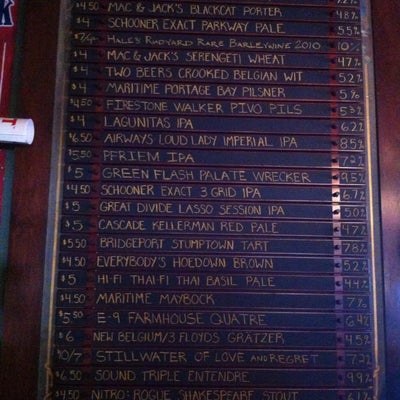 $4.50 MAC & JACK'S BLACKCAT PORTER 4.8%
$4 SCHOONER EXACT PARKWAY PALE 5.5%
$7/4 HALE'S RUDYARD RARE BARLEYWINE 2010 10%
$4 MAC & JACK'S SERENGETI WHEAT 4.7%
$4 TWO BEERS CROOKED BELGIAN WIT 5.2%
$4 MARITIME PORTAGE BAY PILSNER 5%
$4.50 FIRESTONE WALKER PIVO PILS 5.3%
$4 LAGUNITAS IPA 6.2%
$6.50 AIRWAYS LOUD LADY IMPERIAL IPA 8.5%
$5.50 PFRIEM IPA 7.2%
$5 GREEN FLASH PALATE WRECKER 9.5%
$4.50 SCHOONER EXACT 3 GRID IPA 6.7%
$5 GREAT DIVIDE LASSO SESSION IPA 5.0%
$5 CASCADE KELLERMAN RED PALE 4.7%
$5.50 BRIDGEPORT STUMPTOWN TART 7.8%
$4.50 EVERYBODY'S HOEDOWN BROWN 5.2%
$5 HI-FI THAI-FI THAI BASIL PALE 4.4%
$4.50 MARITIME MAYBOCK 7%
$5.50 E-9 FARMHOUSE QUATRE 6.4%
$6 NEW BELGIUM/3 FLOYDS GRÄTZER 4.5%
$10/7 STILLWATER OF LOVE AND REGRET 7.2%
$6.50 SOUND TRIPLE ENTENDRE 9.9%
$4.50 NITRO: ROGUE SHAKESPEARE STOUT 6.1%